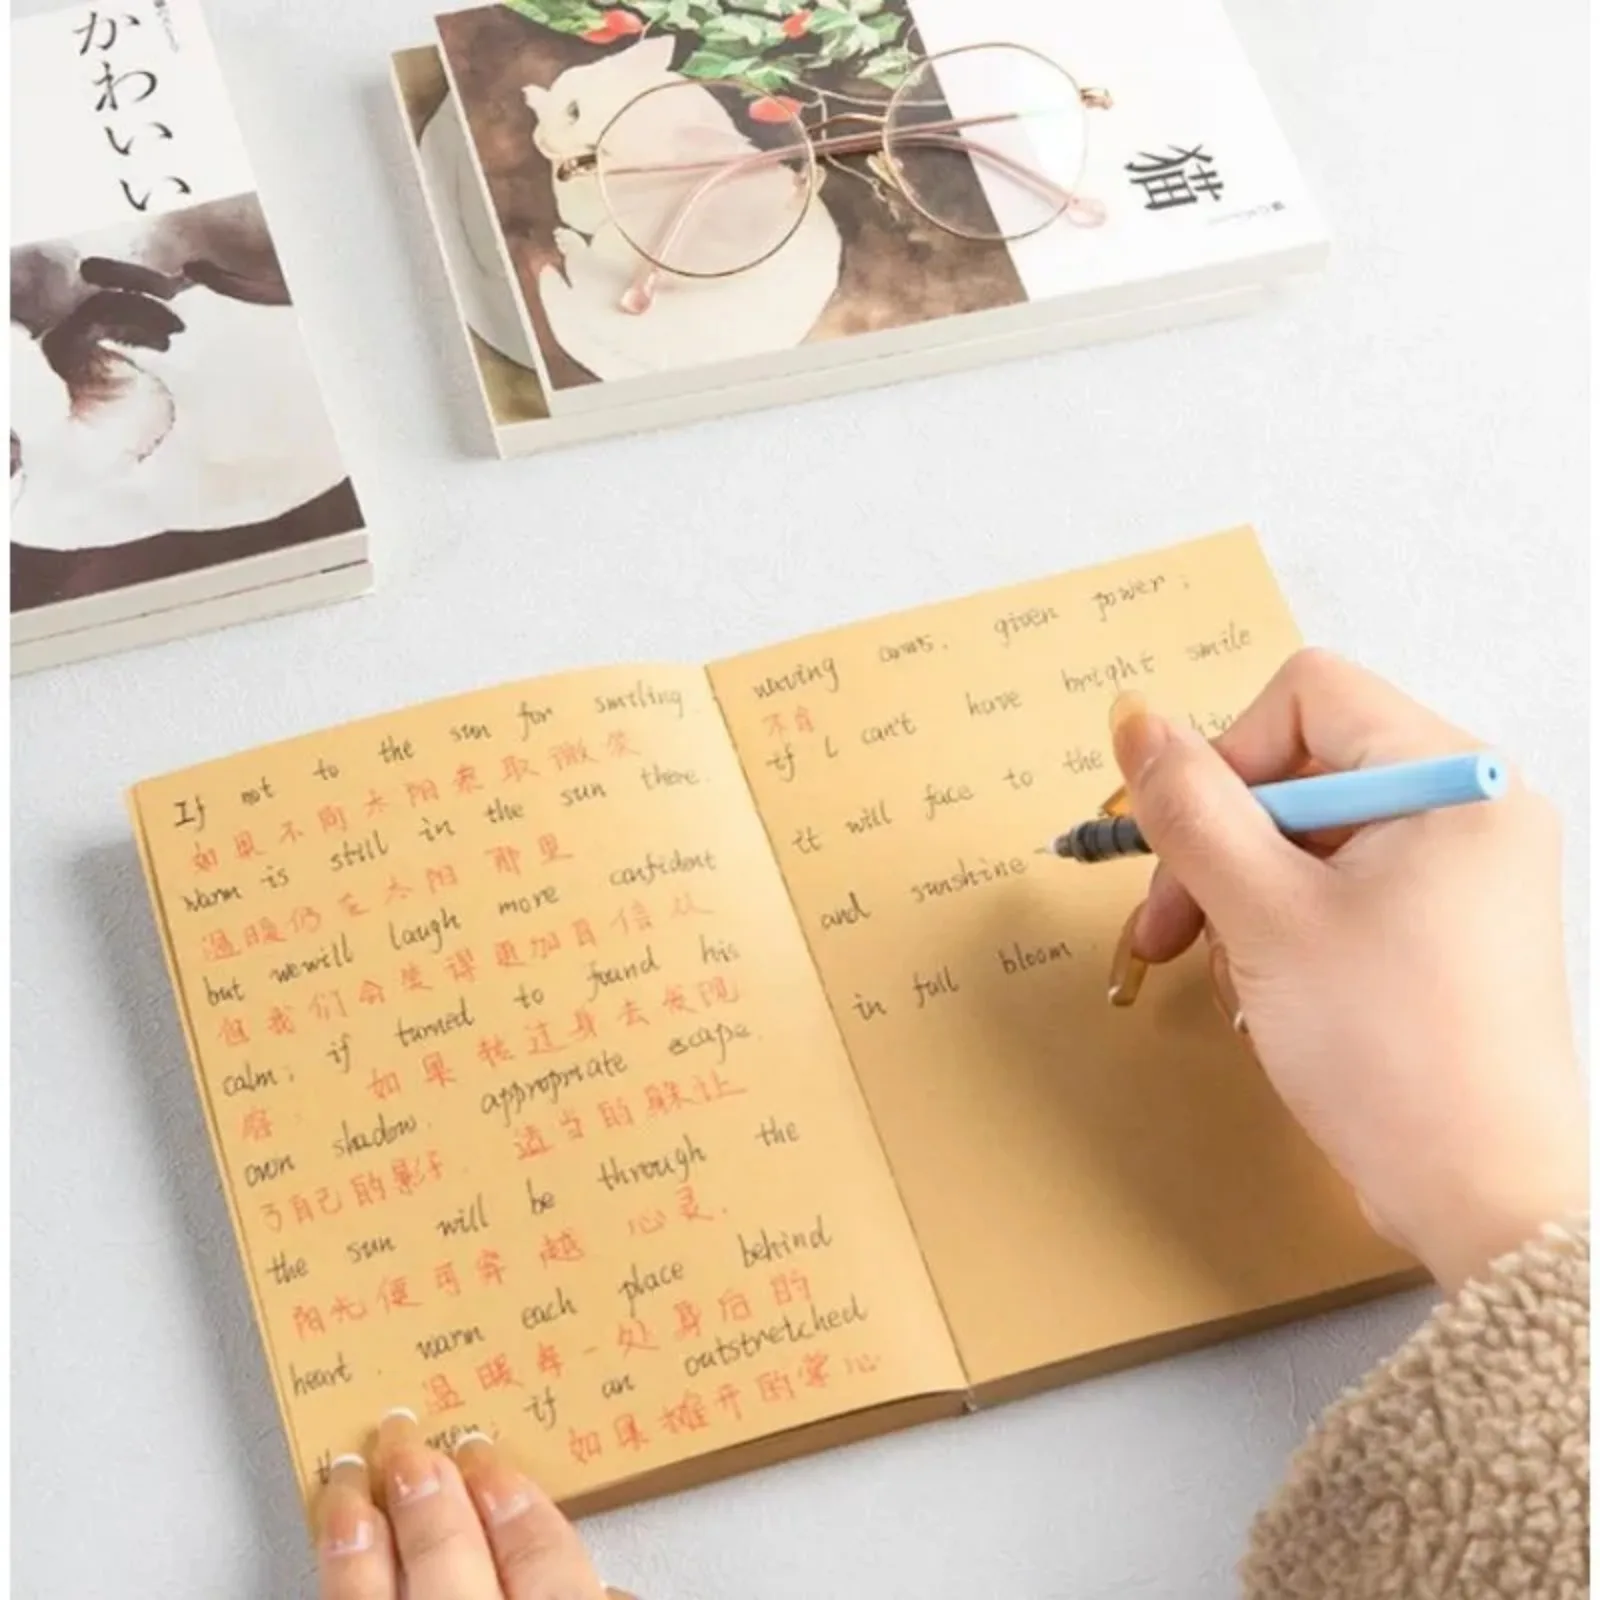 かわいい
猫
If not to the sun for smiling.
如果不向太阳索取微笑
warm is still in the sun there.
温暖仍在太阳那里
but wewill laugh more confident
但我们会笑得更加自信从
calm; if turned to found his
容. 如果转过身去发现
own shadow. appropriate escape.
了自己的影子. 适当的躲让
the sun will be through the
阳光便可穿越心灵.
heart. warm each place behind
温暖每一处身后的
if an outstretched
如果摊开的掌心
waving arms. given power;
不自
if I can't have bright smile
it will face to the
and sunshine
in full bloom.